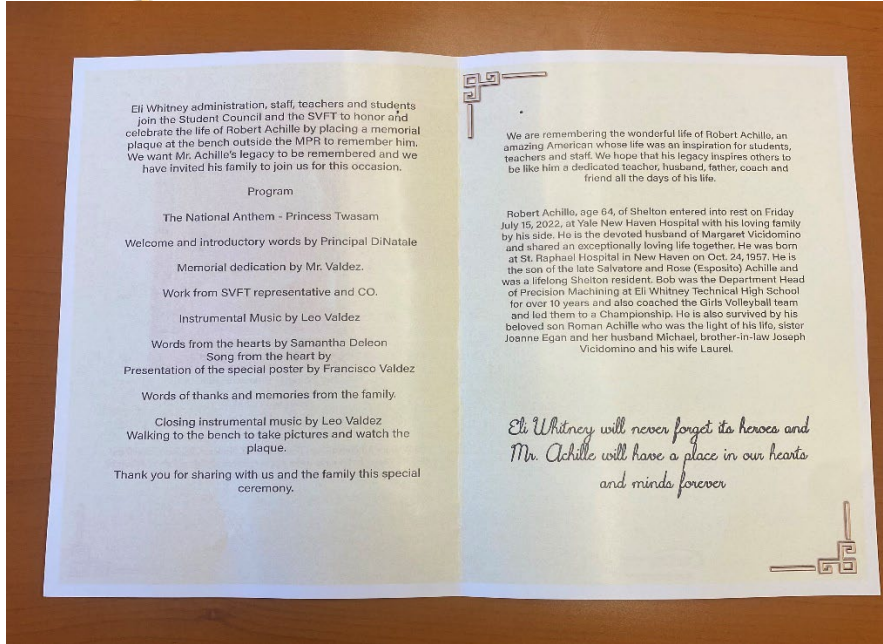 Eli Whitney administration, staff, teachers and students
join the Student Council and the SVFT to honor and
celebrate the life of Robert Achille by placing a memorial
plaque at the bench outside the MPR to remember him.
We want Mr. Achille's legacy to be remembered and we
have invited his family to join us for this occasion.
Program
The National Anthem - Princess Twasam
Welcome and introductory words by Principal DiNatale
Memorial dedication by Mr. Valdez.
Work from SVFT representative and CO.
Instrumental Music by Leo Valdez
Words from the hearts by Samantha Deleon
Song from the heart by
Presentation of the special poster by Francisco Valdez
Words of thanks and memories from the family.
Closing instrumental music by Leo Valdez
Walking to the bench to take pictures and watch the
plaque.
Thank you for sharing with us and the family this special
ceremony.
We are remembering the wonderful life of Robert Achille, an
amazing American whose life was an inspiration for students,
teachers and staff. We hope that his legacy inspires others to
be like him a dedicated teacher, husband, father, coach and
friend all the days of his life.
Robert Achille, age 64, of Shelton entered into rest on Friday
July 15, 2022, at Yale New Haven Hospital with his loving family
by his side. He is the devoted husband of Margaret Vicidomino
and shared an exceptionally loving life together. He was born
at St. Raphael Hospital in New Haven on Oct. 24, 1957. He is
the son of the late Salvatore and Rose (Esposito) Achille and
was a lifelong Shelton resident. Bob was the Department Head
of Precision Machining at Eli Whitney Technical High School
for over 10 years and also coached the Girls Volleyball team
and led them to a Championship. He is also survived by his
beloved son Roman Achille who was the light of his life, sister
Joanne Egan and her husband Michael, brother-in-law Joseph
Vicidomino and his wife Laurel.
Eli Whitney will never forget its heroes and
Mr. Achille will have a place in our hearts
and minds forever